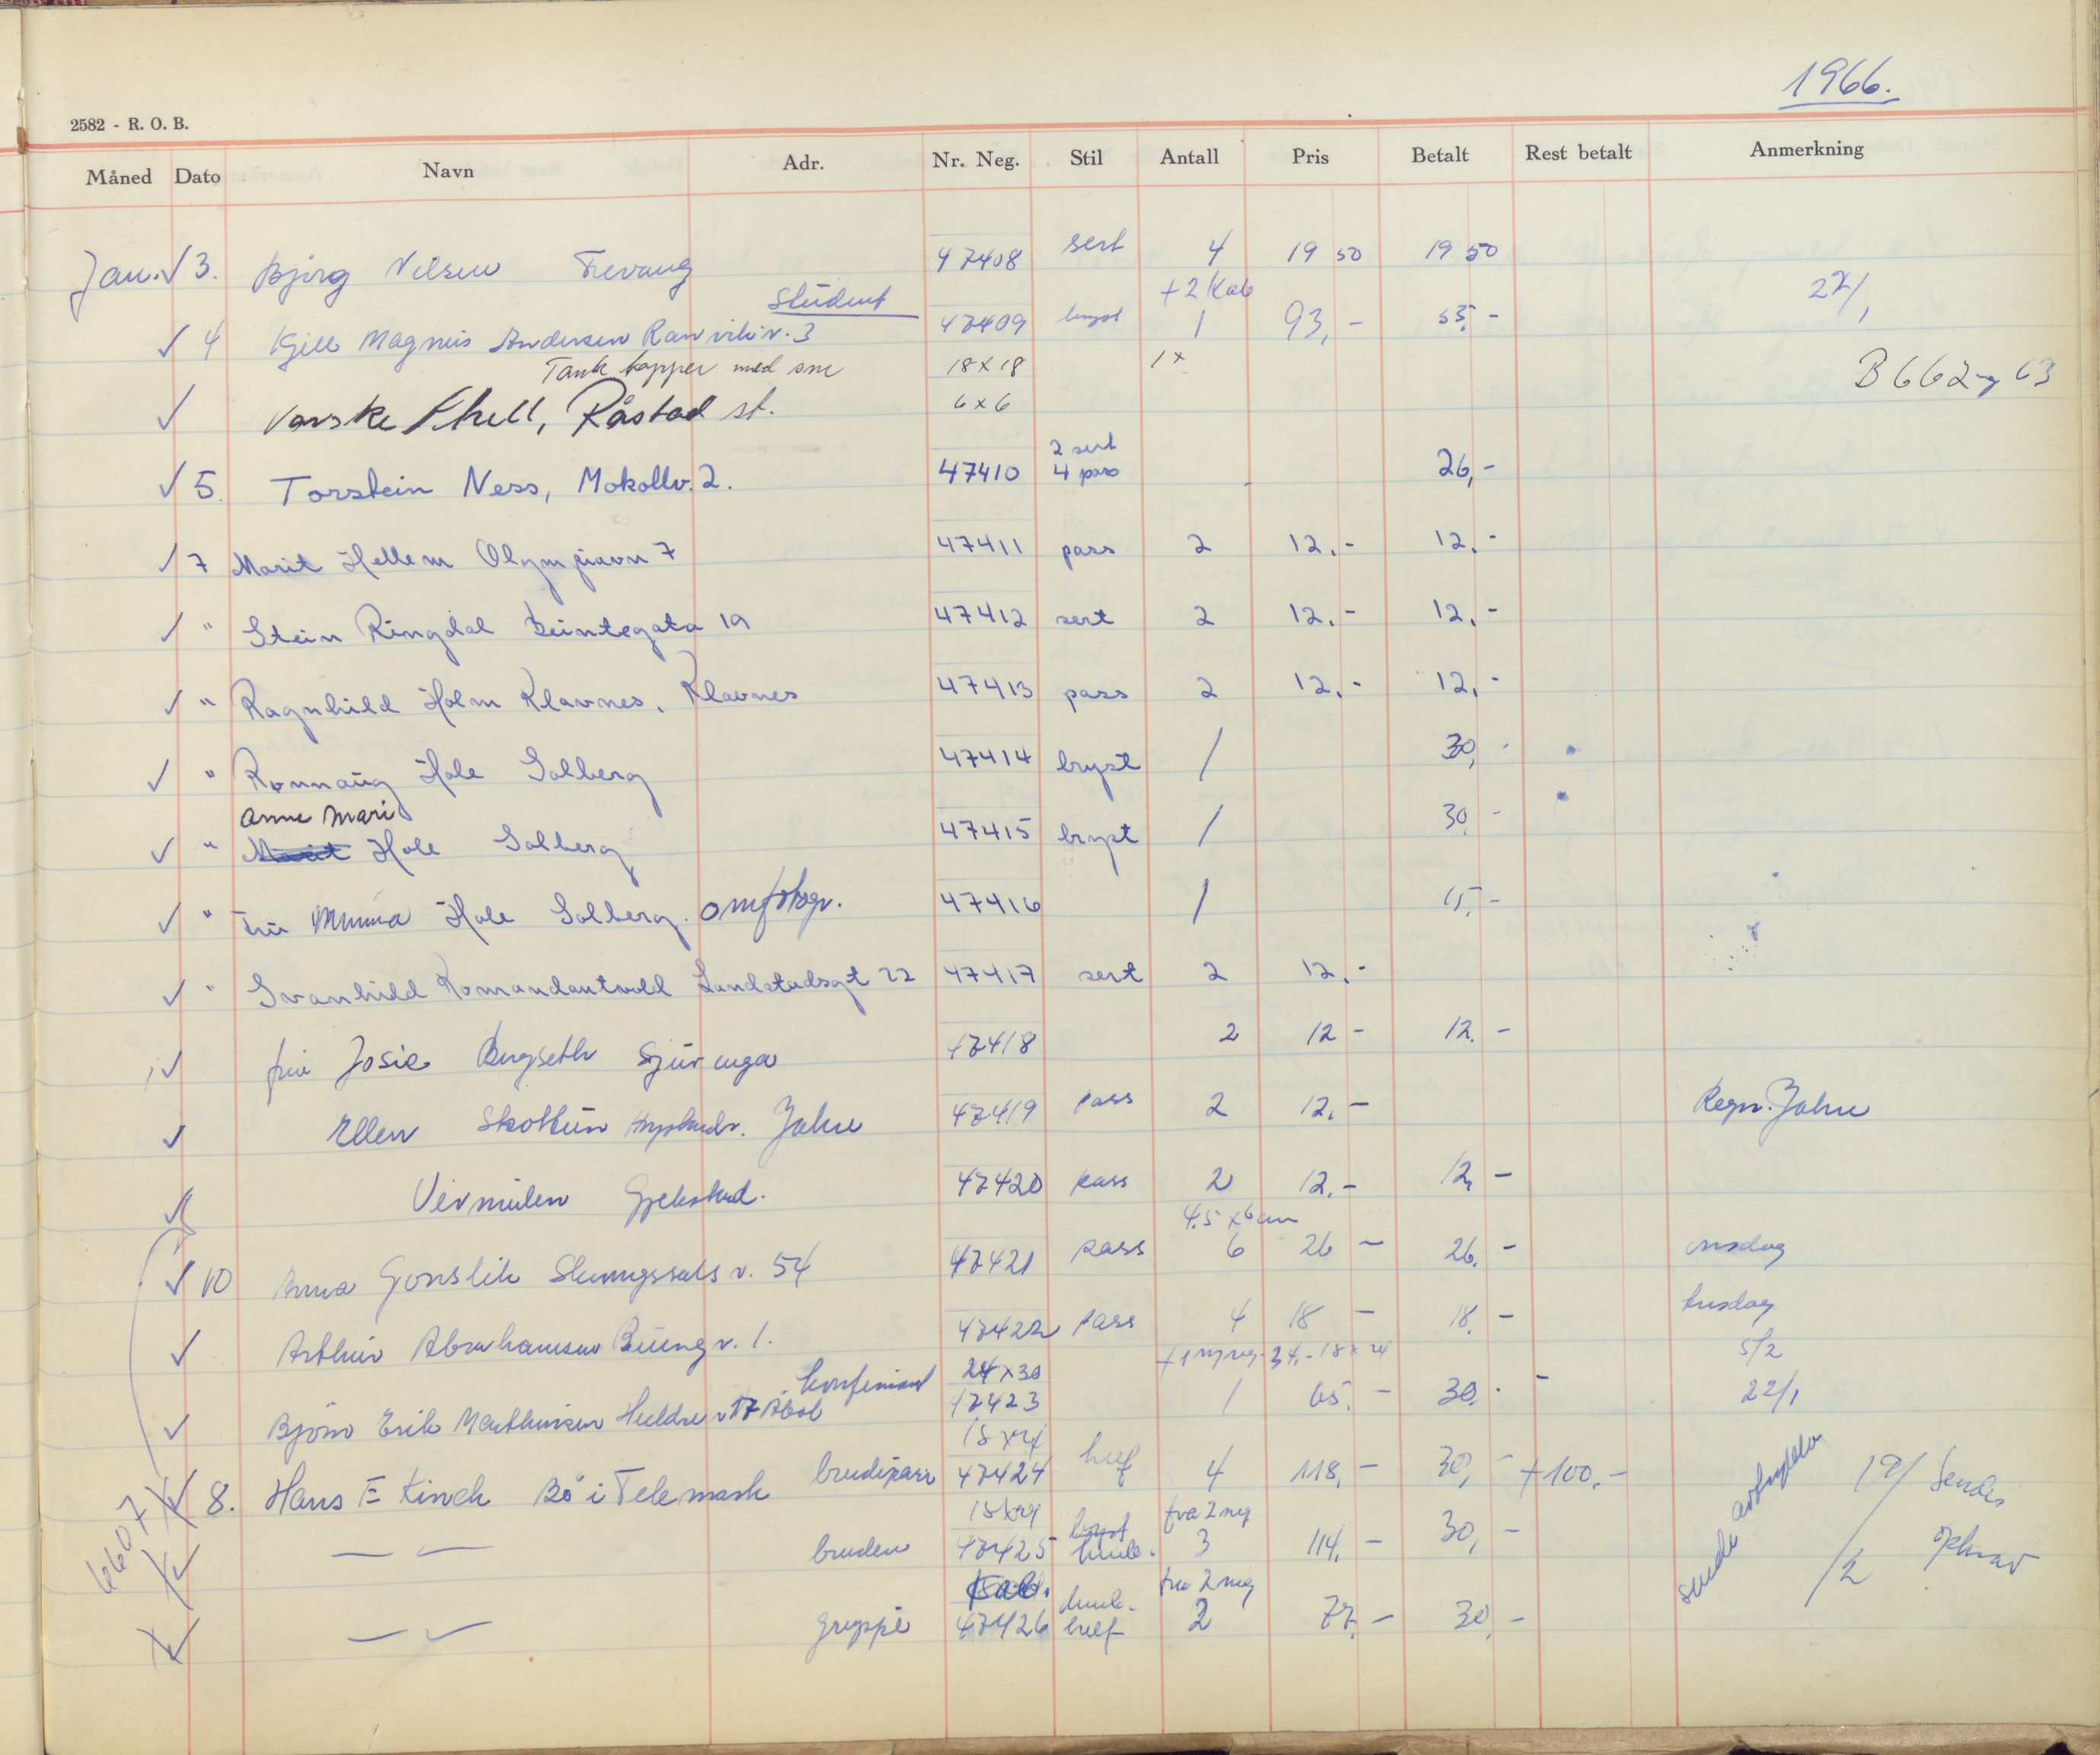 1966.
2582 - R. O. B.
Måned Dato Navn Adr. Nr. Neg. Stil Antall Pris Betalt Rest betalt Anmerkning
Jan. √ 3. Bjørg Nilsen Trevang 47408 sert 4 19 50 19 50
student + 2 Kab 22/1
√ 4 Kjell Magnus Andersen Ranvikv. 3 47409 bryst 1 93,- 55,-
Tank kapper med sne 18x18 1x B662 og 63
√ Varske Shell, Råstad st. 6x6
2 sert
√ 5. Torstein Ness, Mokollv. 2. 47410 4 pass 26,-
√ 7 Marit Hellem Olympiavn 7 47411 pass 2 12.- 12.-
√ " Stein Ringdal Beintegata 19 47412 sert 2 12.- 12.-
√ " Ragnhild Holm Klavnes, Klavnes 47413 pass 2 12.- 12.-
√ " Rønnaug Hole Solberg 47414 bryst 1 30,-
Anne Mari
√ " Marit Hole Solberg 47415 bryst 1 30,-
√ " Fru Minna Hole Solberg. omfotogr. 47416 1 15,-
√ " Svanhild Komandantvold Landstadsgt 22 47417 sert 2 12.-
√ fru Josie Bergseth 47418 2 12 - 12. -
√ Ellen Skottun Jahre 47419 pass 2 12,- Regn. Jahre
√ Vermulen Gjekstad. 47420 pass 2 12.- 12,-
4.5 x 6 cm
√ 10 Anna Gonslik v. 54 47421 pass 6 26 - 26.- onsdag
√ Arthur Abrahamsen Buengv. 1. 47422 pass 4 18 - 18.- tirsdag
34.- 18x24 5/2
konfirmant 24x30
√ Bjørn Erik Mathinsen 17 47423 1 65.- 30.- 22/1
18x24
√ 8. Hans E Kinck Bø i Telemark brudepar 47424 helf 4 118,- 30,- +100.- 19/ Sendes
6607 18x24 bryst fra 2 neg
— — bruden 47425 knele. 3 114,- 30,- sende avtrykka /2
Kab. knele. fra 2 neg
— √ — gruppe 47426 helf 2 77,- 30,-